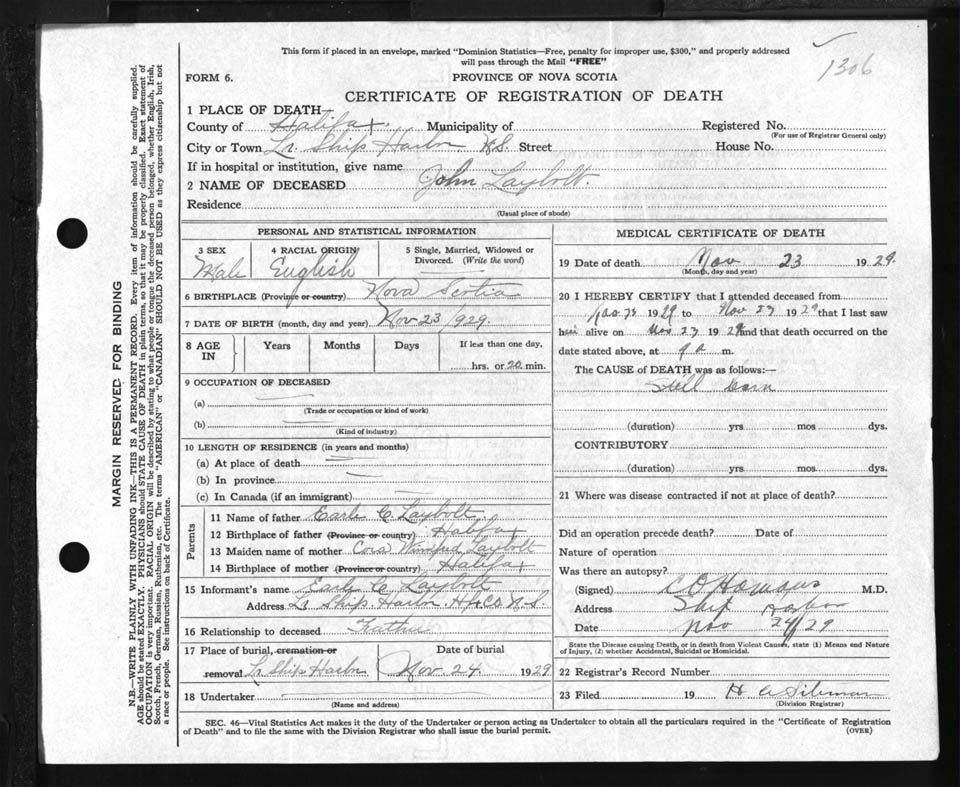 This form if placed in an envelope, marked "Dominion Statistics—Free, penalty for improper use, $300," and properly addressed
will pass through the Mail "FREE"
1306
FORM 6.
PROVINCE OF NOVA SCOTIA
CERTIFICATE OF REGISTRATION OF DEATH
1 PLACE OF DEATH—
County of Halifax. Municipality of Registered No.
(For use of Registrar General only)
City or Town Lr. Ship Harbor N.S. Street House No.
If in hospital or institution, give name
2 NAME OF DECEASED John Laybolt.
Residence
(Usual place of abode)
PERSONAL AND STATISTICAL INFORMATION
3 SEX 4 RACIAL ORIGIN 5 Single, Married, Widowed or
Divorced. (Write the word)
Male English
6 BIRTHPLACE (Province or country) Nova Scotia
7 DATE OF BIRTH (month, day and year) Nov 23/929.
8 AGE IN Years Months Days If less than one day,
hrs. or 20 min.
9 OCCUPATION OF DECEASED
(a)
(Trade or occupation or kind of work)
(b)
(Kind of industry)
10 LENGTH OF RESIDENCE (in years and months)
(a) At place of death
(b) In province
(c) In Canada (if an immigrant)
Parents
11 Name of father Earle C Laybolt
12 Birthplace of father (Province or country) Halifax
13 Maiden name of mother Cora Laybolt
14 Birthplace of mother (Province or country) Halifax
15 Informant's name Earle C Laybolt
Address Lr Ship Harbor Hfx Co N.S.
16 Relationship to deceased Father
17 Place of burial, cremation or Date of burial
removal Lr Ship Harbor Nov. 24. 1929
18 Undertaker
(Name and address)
MEDICAL CERTIFICATE OF DEATH
19 Date of death Nov 23 1929.
(Month, day and year)
20 I HEREBY CERTIFY that I attended deceased from
Nov 23 1929 to Nov 23 1929 that I last saw
him alive on Nov 23 1929 and that death occurred on
date stated above, at 9 a m.
The CAUSE of DEATH was as follows:—
Still Born
(duration) yrs mos dys.
CONTRIBUTORY
(duration) yrs mos dys.
21 Where was disease contracted if not at place of death?
Did an operation precede death? Date of
Nature of operation
Was there an autopsy?
(Signed) M.D.
Address Ship Harbor
Date Nov 24/29
State the Disease causing Death, or in death from Violent Causes, state (1) Means end Nature
of Injury, (2) whether Accidental, Suicidal or Homicidal.
22 Registrar's Record Number
23 Filed 19 H A
(Division Registrar)
SEC. 46—Vital Statistics Act makes it the duty of the Undertaker or person acting as Undertaker to obtain all the particulars required in the "Certificate of Registration
of Death" and to file the same with the Division Registrar who shall issue the burial permit. (OVER)
MARGIN RESERVED FOR BINDING
N.B.—WRITE PLAINLY WITH UNFADING INK—THIS IS A PERMANENT RECORD. Every item of information should be carefully supplied.
AGE should be stated EXACTLY. PHYSICIANS should STATE CAUSE OF DEATH in plain terms, so that it may be properly classified. Exact statement of
OCCUPATION is very important. RACIAL ORIGIN will be described by stating to what people or tongue the deceased person belonged, whether English, Irish,
Scotch, French, German, Russian, Ruthenian, etc. The terms "AMERICAN" or "CANADIAN" SHOULD NOT BE USED as they express citizenship but not
a race or people. See instructions on back of Certificate.